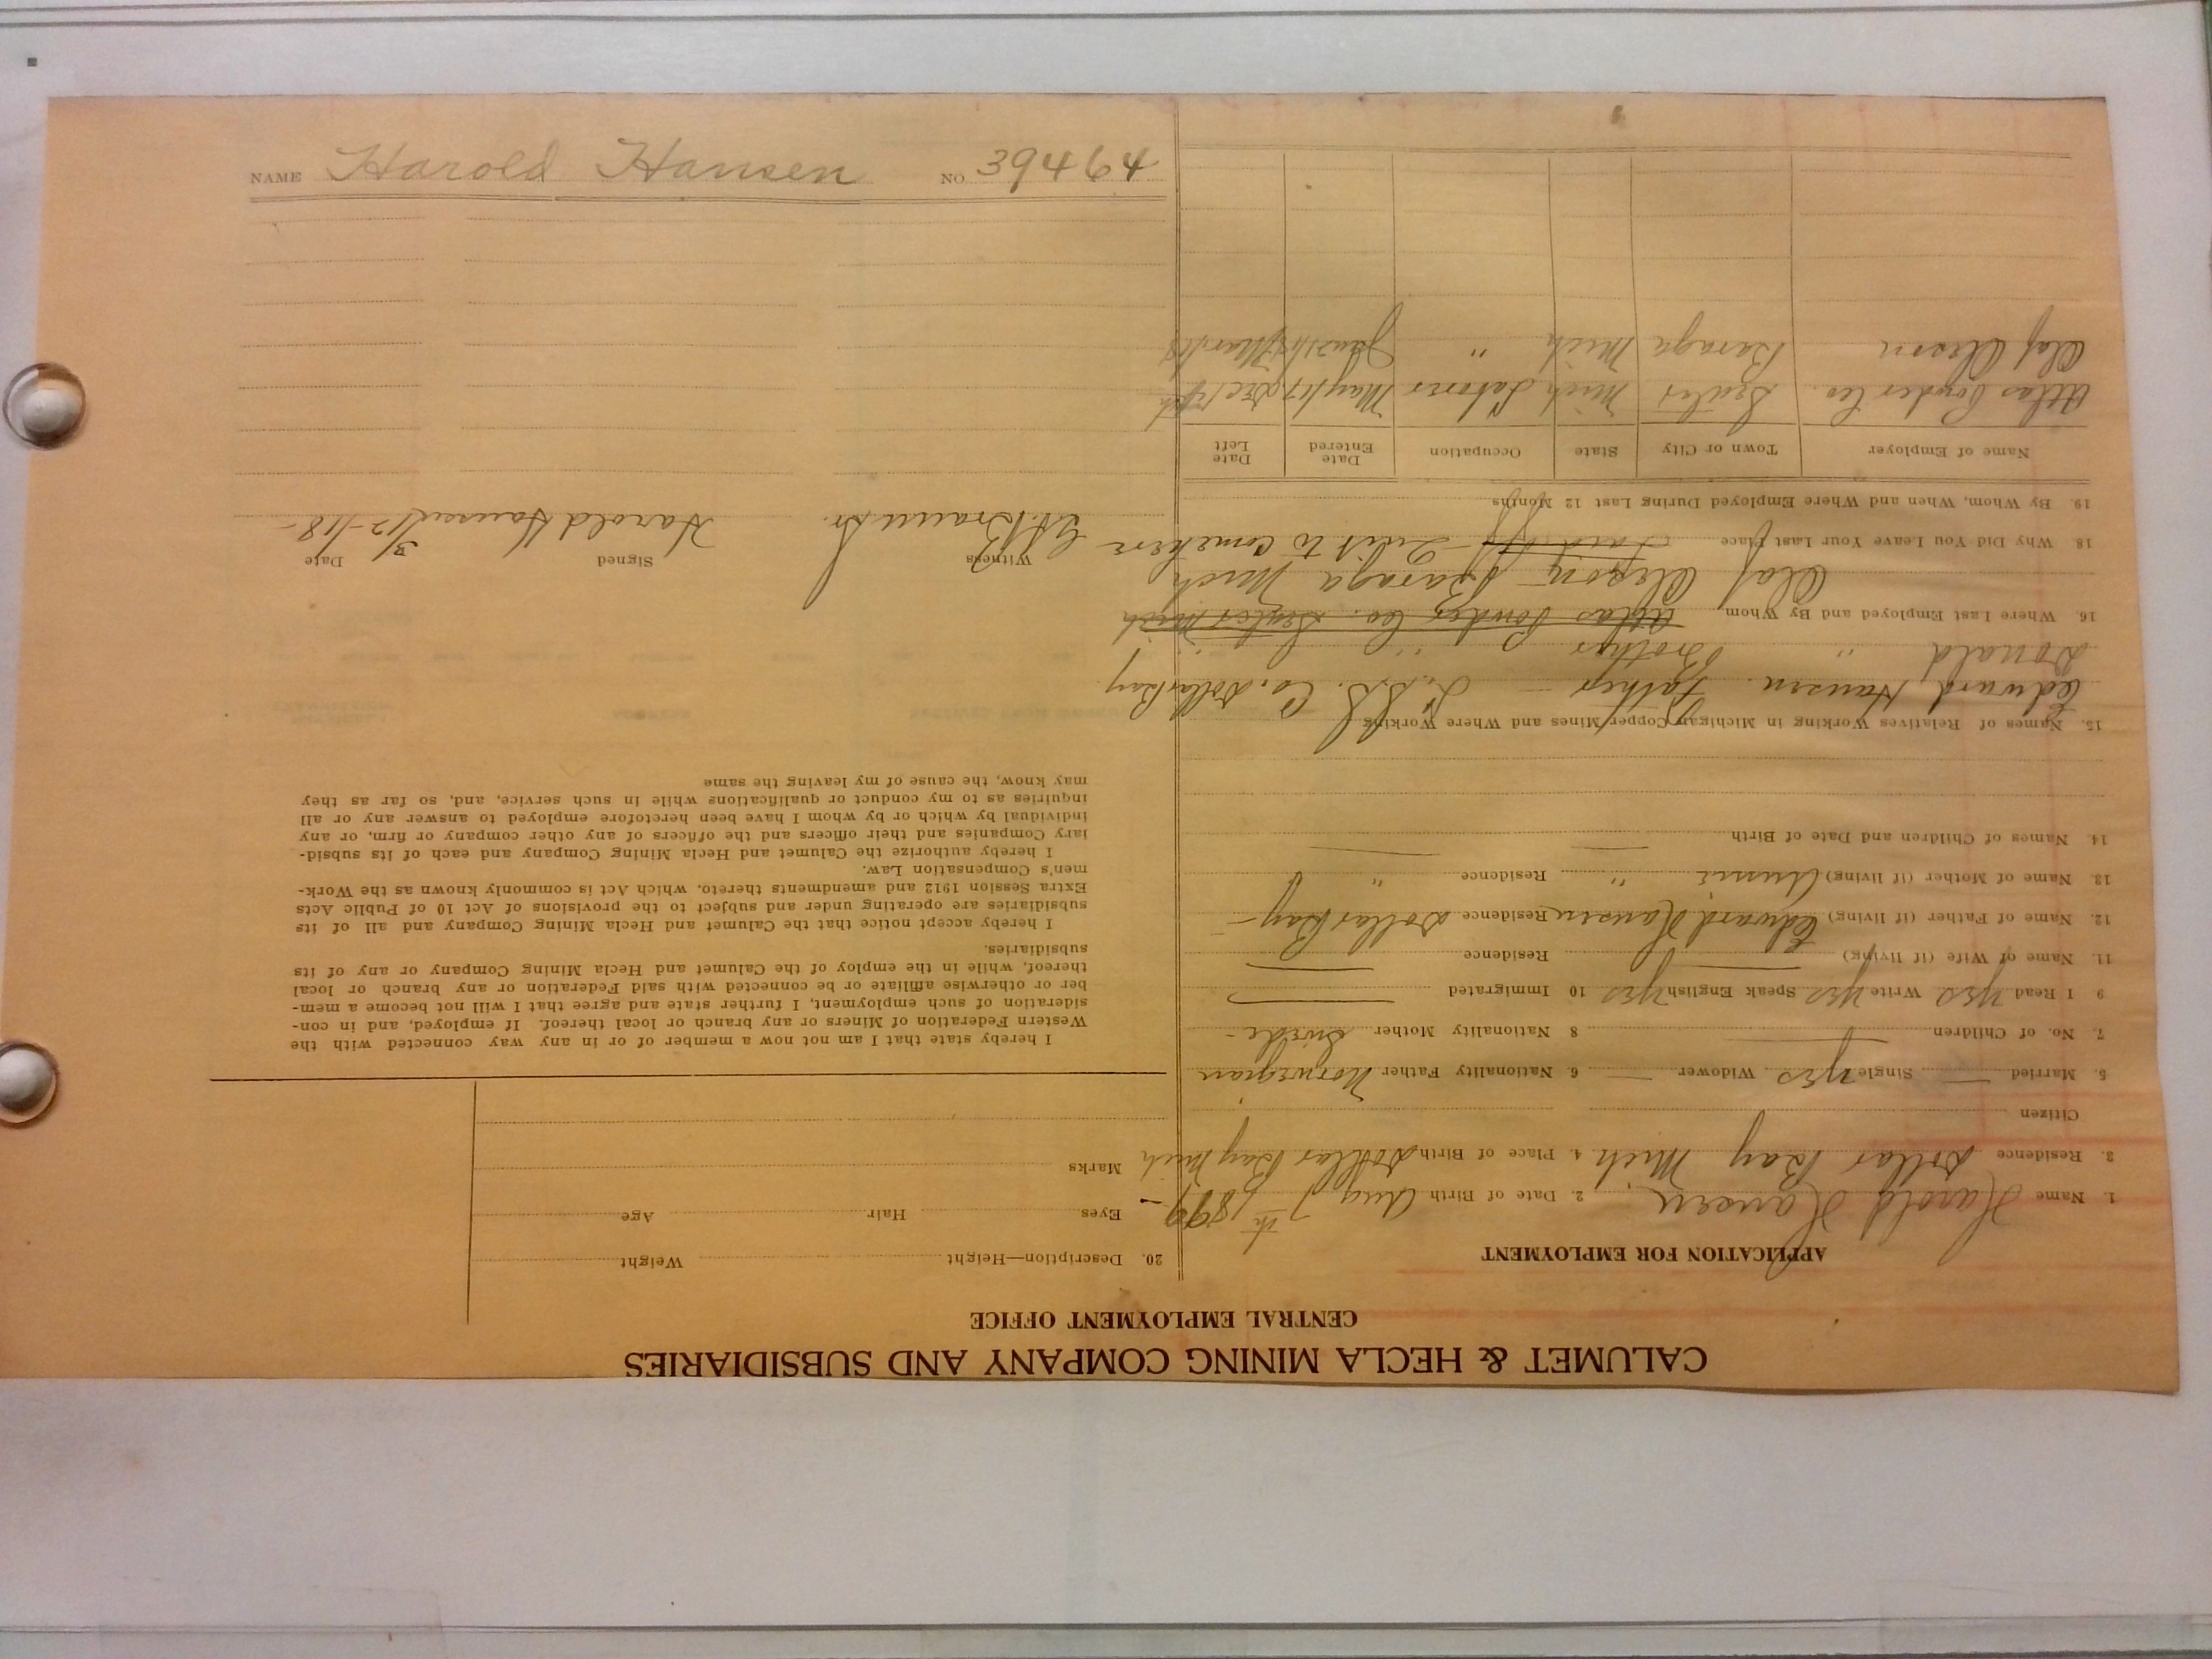 CALUMET & HECLA MINING COMPANY AND SUBSIDIARIES
CENTRAL EMPLOYMENT OFFICE
APPLICATION FOR EMPLOYMENT
1. Name Harold Hansen 2. Date of Birth Aug 7th 1899 -
3. Residence Dollar Bay Mich 4. Place of Birth Dollar Bay Mich
Citizen
5. Married — Single yes Widower — 6. Nationality Father Norwegian
7. No. of Children — 8 Nationality Mother Swede -
9 I Read yes Write yes Speak English yes 10 Immigrated —
11. Name of Wife (if living) — Residence —
12. Name of Father (if living) Edward Hansen Residence Dollar Bay -
13. Name of Mother (if living) " Residence "
14. Names of Children and Date of Birth — —
15. Names of Relatives Working in Michigan Copper Mines and Where Working
Edward Hansen. Father — L.S.S. Co. Dollar Bay
Donald " Brother " "
16. Where Last Employed and By Whom Atlas Powder Co. Mich
Olaf Oleson - Baraga Mich
18. Why Did You Leave Your Last Place Laid off - Quit to come here
19. By Whom, When and Where Employed During Last 12 Months
Name of Employer Town or City State Occupation Date Entered Date Left
Atlas Powder Co. Mich Laborer May/17
Olaf Oleson Baraga Mich "
20. Description—Height Weight
Eyes Hair Age
Marks
I hereby state that I am not now a member of or in any way connected with the
Western Federation of Miners or any branch or local thereof. If employed, and in con-
sideration of such employment, I further state and agree that I will not become a mem-
ber or otherwise affiliate or be connected with said Federation or any branch or local
thereof, while in the employ of the Calumet and Hecla Mining Company or any of its
subsidiaries.
I hereby accept notice that the Calumet and Hecla Mining Company and all of its
subsidiaries are operating under and subject to the provisions of Act 10 of Public Acts
Extra Session 1912 and amendments thereto, which Act is commonly known as the Work-
men's Compensation Law.
I hereby authorize the Calumet and Hecla Mining Company and each of its subsid-
iary Companies and their officers and the officers of any other company or firm, or any
individual by which or by whom I have been heretofore employed to answer any or all
inquiries as to my conduct or qualifications while in such service, and, so far as they
may know, the cause of my leaving the same
Witness Signed Date
Braun Jr. Harold Hansen 3/12-/18-
NAME Harold Hansen NO. 39464